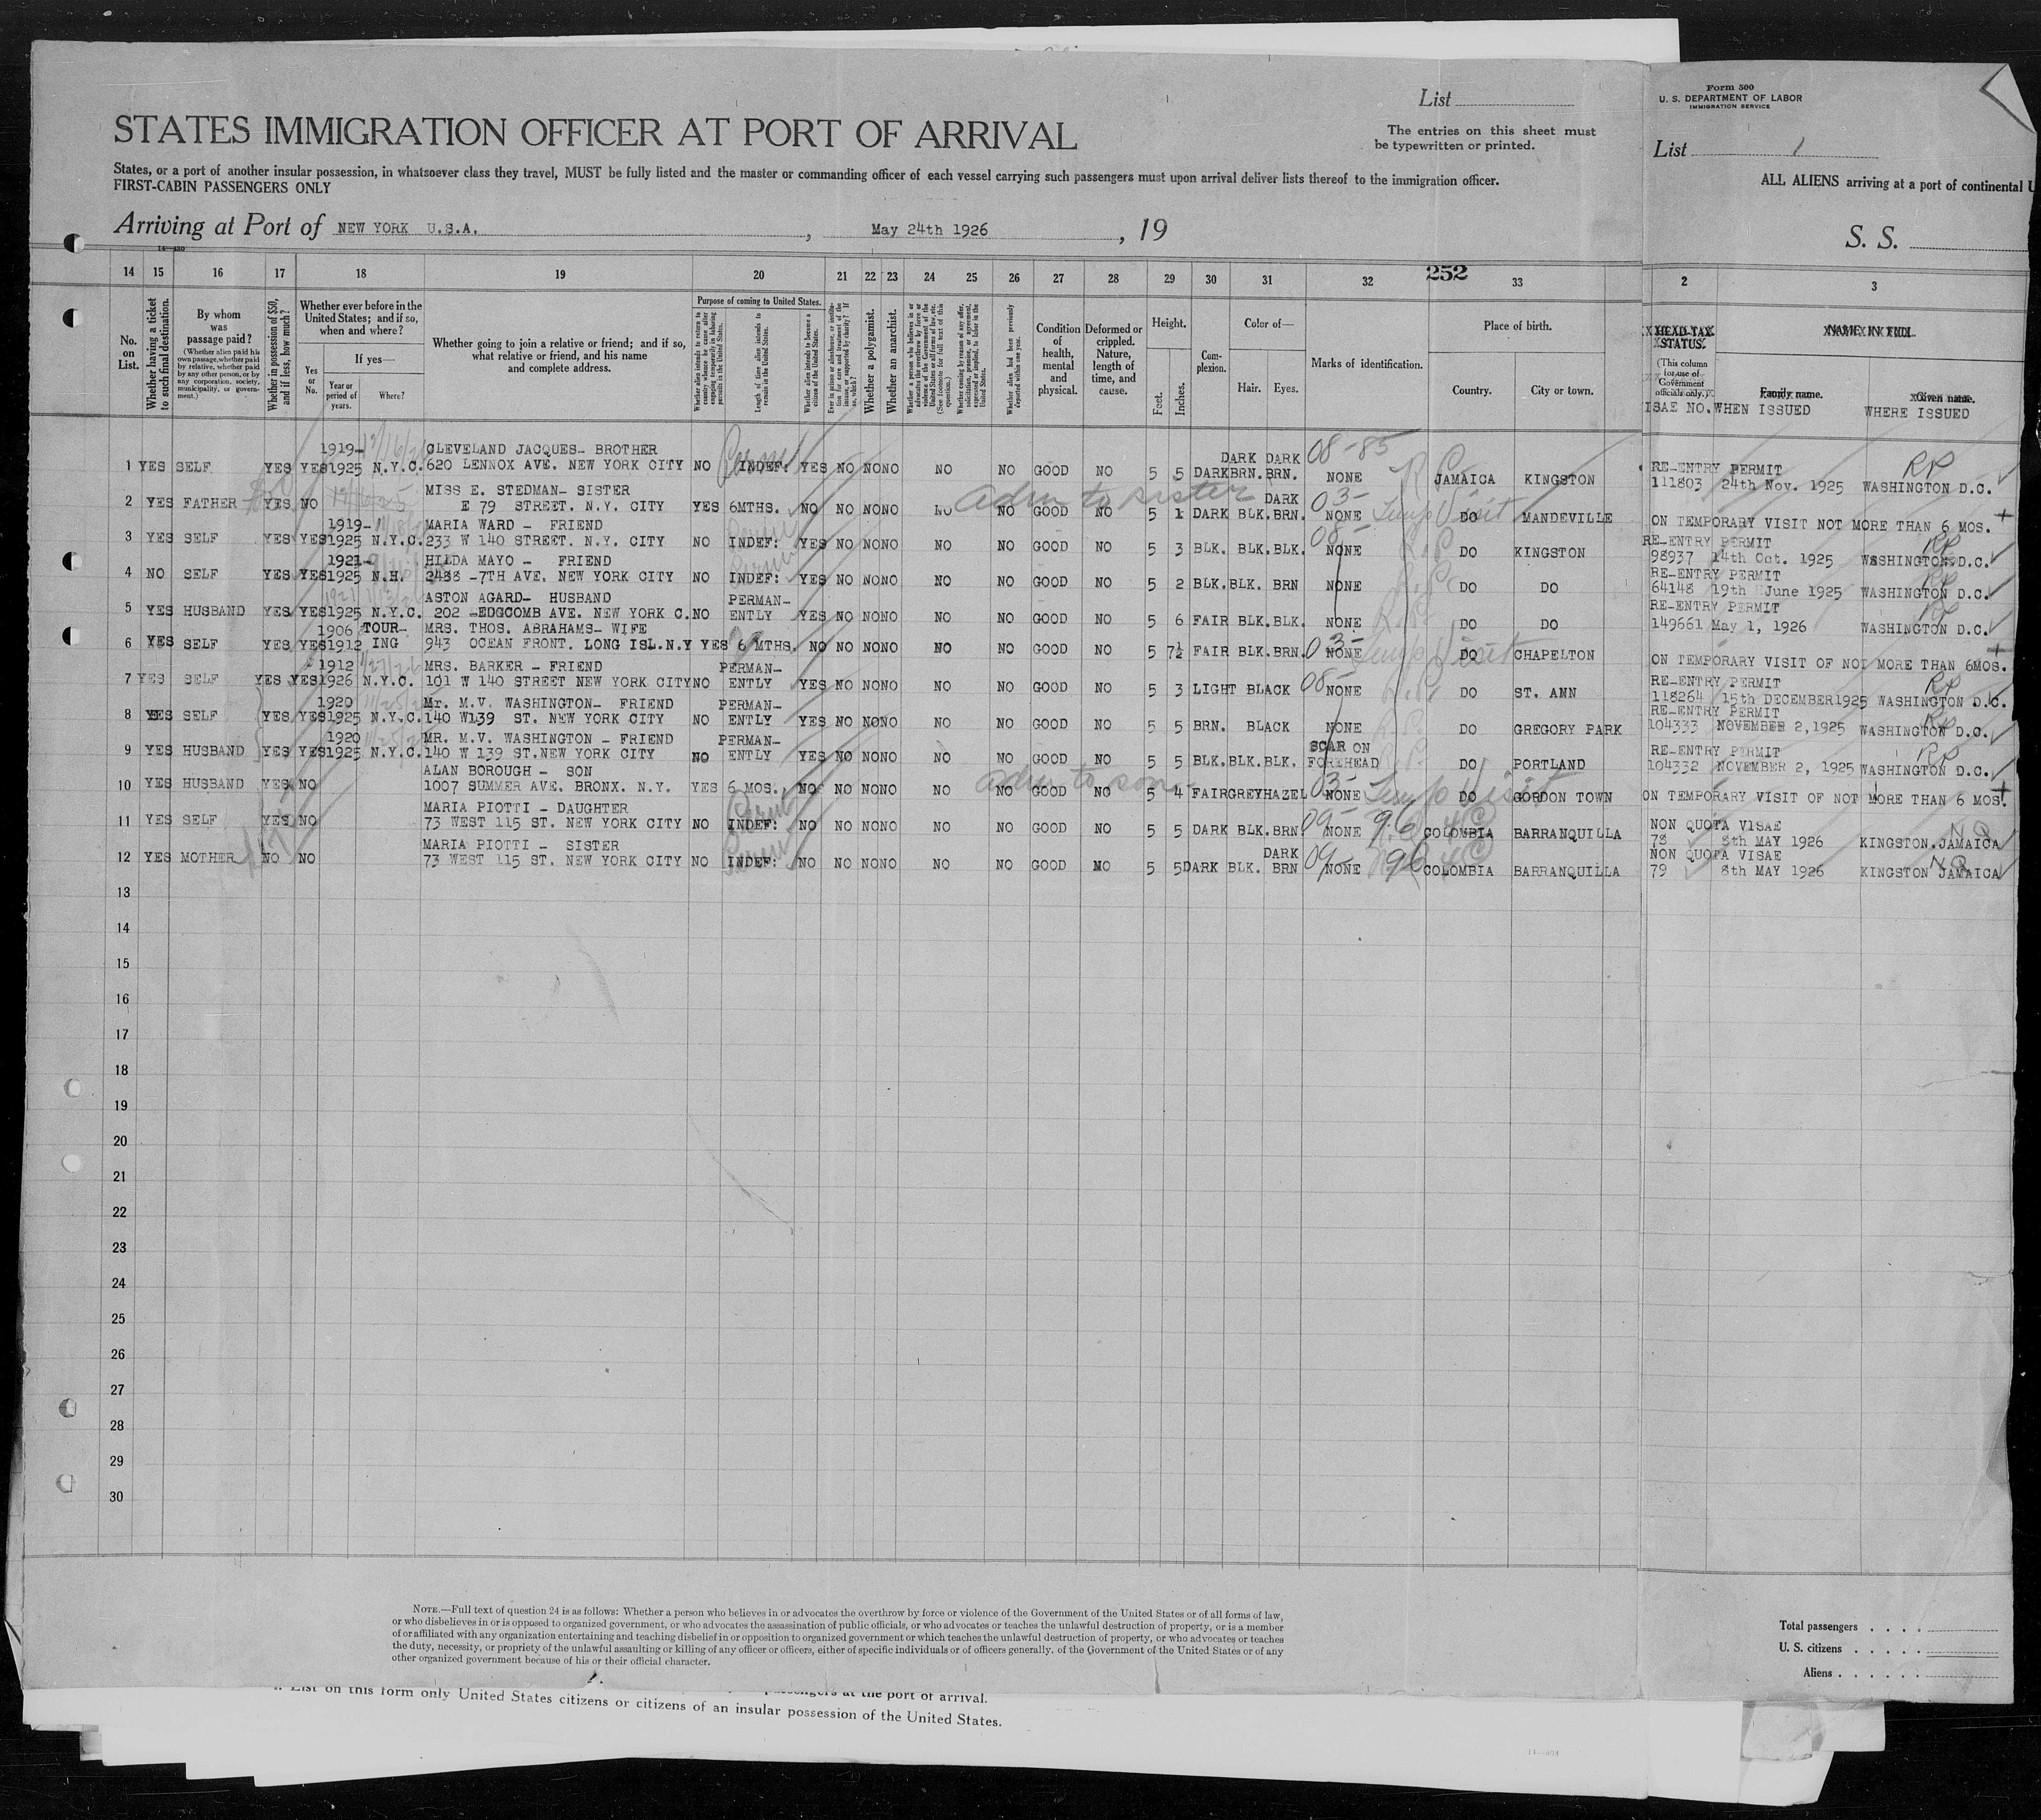 List
STATES IMMIGRATION OFFICER AT PORT OF ARRIVAL
The entries on this sheet must
be typewritten or printed.
States, or a port of another insular possession, in whatsoever class they travel, MUST be fully listed and the master or commanding officer of each vessel carrying such passengers must upon arrival deliver lists thereof to the immigration officer.
FIRST-CABIN PASSENGERS ONLY
Arriving at Port of NEW YORK U.S.A. , May 24th 1926 , 19
Form 500
U. S. DEPARTMENT OF LABOR
IMMIGRATION SERVICE
List 1
ALL ALIENS arriving at a port of continental U
S. S.
14 15 16 17 18 19 20 21 22 23 24 25 26 27 28 29 30 31 32 252 33 2 3
No. on List.
Whether having a ticket to such final destination.
By whom was passage paid?
(Whether alien paid his own passage, whether paid by relative, whether paid by any other person, or by any corporation, society, municipality, or government.)
Whether in possession of $50, and if less, how much?
Whether ever before in the United States; and if so, when and where?
Yes or No.
If yes—
Year or period of years.
Where?
Whether going to join a relative or friend; and if so, what relative or friend, and his name and complete address.
Purpose of coming to United States.
Length of time alien intends to remain in the United States.
Whether alien intends to become a citizen of the United States.
Whether a polygamist.
Whether an anarchist.
Whether alien had been previously deported within one year.
Condition of health, mental and physical.
Deformed or crippled. Nature, length of time, and cause.
Height.
Feet.
Inches.
Complexion.
Color of—
Hair.
Eyes.
Marks of identification.
Place of birth.
Country.
City or town.
HEAD-TAX STATUS.
(This column for use of Government officials only.)
NAME IN FULL
Family name.
Given name.
ISAE NO. WHEN ISSUED WHERE ISSUED
1919- CLEVELAND JACQUES- BROTHER DARK DARK 08-85 RE-ENTRY PERMIT RP
1 YES SELF YES YES 1925 N.Y.C. 620 LENNOX AVE. NEW YORK CITY NO INDEF: YES NO NO NO NO NO GOOD NO 5 5 DARK BRN. BRN. NONE JAMAICA KINGSTON 111803 24th Nov. 1925 WASHINGTON D.C.
MISS E. STEDMAN- SISTER adm to sister DARK 03- Temp Visit
2 YES FATHER YES NO E 79 STREET. N.Y. CITY YES 6MTHS. NO NO NO NO NO NO GOOD NO 5 1 DARK BLK. BRN. NONE DO MANDEVILLE ON TEMPORARY VISIT NOT MORE THAN 6 MOS.
1919- MARIA WARD - FRIEND 08- RE-ENTRY PERMIT RP
3 YES SELF YES YES 1925 N.Y.C. 233 W 140 STREET. N.Y. CITY NO INDEF: YES NO NO NO NO NO GOOD NO 5 3 BLK. BLK. BLK. NONE DO KINGSTON 98937 14th Oct. 1925 WASHINGTON D.C.
1921- HILDA MAYO - FRIEND RE-ENTRY PERMIT RP
4 NO SELF YES YES 1925 N.H. 2488 -7TH AVE. NEW YORK CITY NO INDEF: YES NO NO NO NO NO GOOD NO 5 2 BLK. BLK. BRN NONE DO DO 64148 19th June 1925 WASHINGTON D.C.
ASTON AGARD- HUSBAND PERMAN- RE-ENTRY PERMIT RP
5 YES HUSBAND YES YES 1925 N.Y.C. 202 -EDGCOMB AVE. NEW YORK C. NO ENTLY YES NO NO NO NO NO GOOD NO 5 6 FAIR BLK. BLK. NONE DO DO 149661 May 1, 1926 WASHINGTON D.C.
1906 TOUR- MRS. THOS. ABRAHAMS- WIFE 03- Temp Visit
6 YES SELF YES YES 1912 ING 943 OCEAN FRONT. LONG ISL. N.Y YES 6 MTHS. NO NO NO NO NO NO GOOD NO 5 7½ FAIR BLK. BRN. NONE DO CHAPELTON ON TEMPORARY VISIT OF NOT MORE THAN 6MOS.
1912 MRS. BARKER - FRIEND PERMAN- 08- RE-ENTRY PERMIT RP
7 YES SELF YES YES 1926 N.Y.C. 101 W 140 STREET NEW YORK CITY NO ENTLY YES NO NO NO NO NO GOOD NO 5 3 LIGHT BLACK NONE DO ST. ANN 118264 15th DECEMBER 1925 WASHINGTON D.C.
1920 Mr. M.V. WASHINGTON- FRIEND PERMAN- RE-ENTRY PERMIT RP
8 YES SELF YES YES 1925 N.Y.C. 140 W139 ST. NEW YORK CITY NO ENTLY YES NO NO NO NO NO GOOD NO 5 5 BRN. BLACK NONE DO GREGORY PARK 104333 NOVEMBER 2, 1925 WASHINGTON D.C.
1920 MR. M.V. WASHINGTON - FRIEND PERMAN- SCAR ON RE-ENTRY PERMIT RP
9 YES HUSBAND YES YES 1925 N.Y.C. 140 W 139 ST. NEW YORK CITY NO ENTLY YES NO NO NO NO NO GOOD NO 5 5 BLK. BLK. BLK. FOREHEAD DO PORTLAND 104332 NOVEMBER 2, 1925 WASHINGTON D.C.
ALAN BOROUGH - SON adm to son 03- Temp Visit
10 YES HUSBAND YES NO 1007 SUMMER AVE. BRONX. N.Y. YES 6 MOS. NO NO NO NO NO NO GOOD NO 5 4 FAIR GREY HAZEL NONE DO GORDON TOWN ON TEMPORARY VISIT OF NOT MORE THAN 6 MOS.
MARIA PIOTTI - DAUGHTER 09- 96 NON QUOTA VISAE NQ
11 YES SELF YES NO 73 WEST 115 ST. NEW YORK CITY NO INDEF: NO NO NO NO NO NO GOOD NO 5 5 DARK BLK. BRN NONE COLOMBIA BARRANQUILLA 78 8th MAY 1926 KINGSTON. JAMAICA
MARIA PIOTTI - SISTER DARK 09- 96 NON QUOTA VISAE NQ
12 YES MOTHER NO NO 73 WEST 115 ST. NEW YORK CITY NO INDEF: NO NO NO NO NO NO GOOD NO 5 5 DARK BLK. BRN NONE COLOMBIA BARRANQUILLA 79 8th MAY 1926 KINGSTON JAMAICA
13
14
15
16
17
18
19
20
21
22
23
24
25
26
27
28
29
30
NOTE.—Full text of question 24 is as follows: Whether a person who believes in or advocates the overthrow by force or violence of the Government of the United States or of all forms of law,
or who disbelieves in or is opposed to organized government, or who advocates the assassination of public officials, or who advocates or teaches the unlawful destruction of property, or is a member
of or affiliated with any organization entertaining and teaching disbelief in or opposition to organized government or which teaches the unlawful destruction of property, or who advocates or teaches
the duty, necessity, or propriety of the unlawful assaulting or killing of any officer or officers, either of specific individuals or of officers generally, of the Government of the United States or of any
other organized government because of his or their official character.
Total passengers
U. S. citizens
Aliens
at the port of arrival.
List on this form only United States citizens or citizens of an insular possession of the United States.